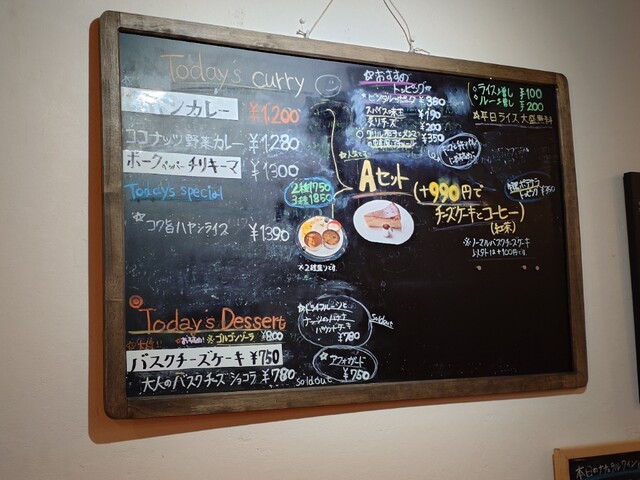 Today's curry
ンカレー ¥1.200
ココナッツ野菜カレー ¥1280
ポークペッパーチリキーマ ¥1300
Today's special
コク旨ハヤシライス ¥1390
2種1750
3種1850
☆2種盛りです
☆おすすめ
トッピング☆
¥380
¥190
¥200
¥350
ライス増し ¥100
ルー増し ¥200
平日ライス大盛無料
Aセット
(+990円で
チーズケーキとコーヒー)
(紅茶)
※ノーマルバスクチーズケーキ
以外は+100円です。
Today's Dessert
ゴルゴンゾーラ ¥800
バスクチーズケーキ ¥750
大人のバスクチーズショコラ ¥780 soldout
ドライフルーツと
ナッツのバナナ
パウンドケーキ
¥780
Soldout
アフォガード
¥750
本日のナチュラルワイン